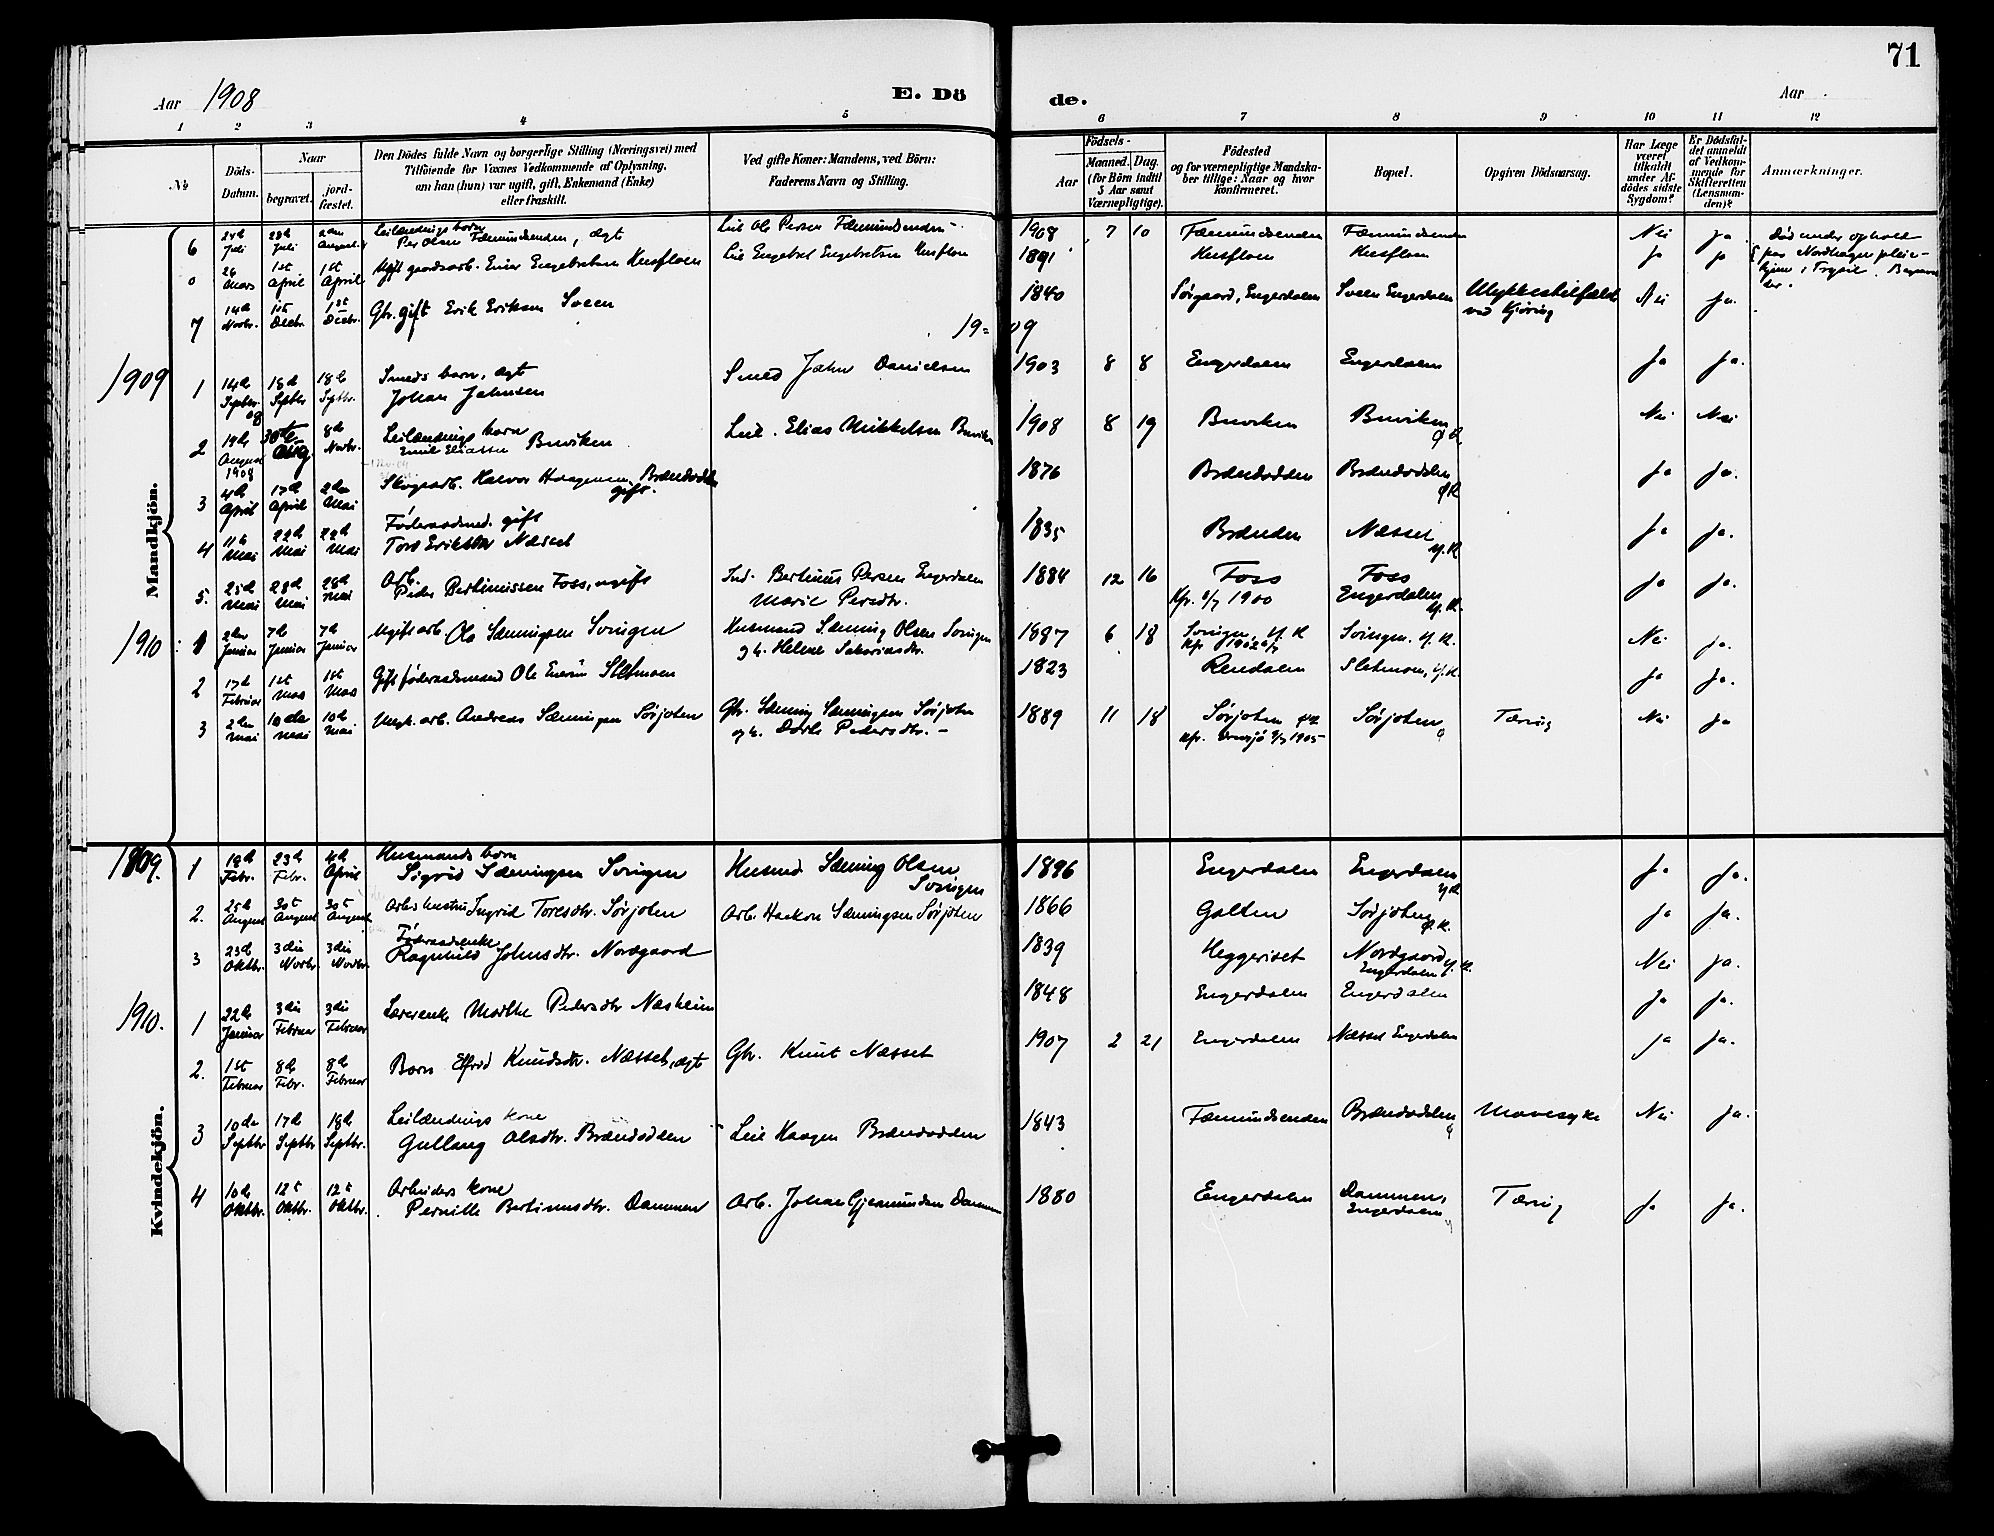 71
Aar 1908
E. Dö
de.
Aar
1 2 3 4 5 6 7 8 9 10 11 12
№
Döds-Datum.
Naar
begravet.
jord-fæstet.
Den Dödes fulde Navn og borgerlige Stilling (Næringsvei) med
Tilföiende for Voxnes Vedkommende af Oplysning,
om han (hun) var ugift, gift, Enkemand (Enke)
eller fraskilt.
Ved gifte Koner: Mandens, ved Börn:
Faderens Navn og Stilling.
Födsels-
Aar
Maaned. Dag.
(for Börn indtil
5 Aar samt
Værnepligtige).
Födested
og for værnepligtige Mandska-
ber tillige: Naar og hvor
konfirmeret.
Bopæl.
Opgiven Dödsaarsag.
Har Læge
været
tilkaldt
under Af-
dödes sidste
Sygdom?
Er Dödsfal-
det anmeldt
af Vedkom-
mende for
Skifteretten
(Lensman-
den)?
Anmærkninger.
Mandkjön.
6 24de Juli 28de Juli 2den August Leilændings barn Per Olsen Fæmundsenden, ægt Leil Ole Persen Fæmundsenden 1908 7 10 Fæmundsenden Fæmundsenden Nei Ja
0 26 Mars 1st April 1st April Ugift gaardsarb. Einar Engebretsen Husfloen Leil Engebret Engebretsen Husfloen 1891 Husfloen Husfloen Ja Ja Död under ophold paa Nordhagen pleie-hjem i Trysil. Begravet der.
7 14de Novbr. 1st Decbr. 1st Decbr. Gbr. gift Erik Eriksen Sveen 1840 Sörgaard, Engerdalen Sveen Engerdalen Ulykkestilfælde ved Kjöring Nei Ja.
19=09
1909
1 14de Septbr. 18de Septbr 18de Septbr. Smeds barn, ægt Johan Jahnsen Smed Jahn Danielsen 1903 8 8 Engerdalen Engerdalen Ja Ja.
2 19de August 1908 30te Aug 8de Novbr. Leilændings barn Emil Eliassen Buviken Leil. Elias Mikkelsen Buviken 1908 8 19 Buviken Buviken Nei Nei
3 4de April 17de April 2den Mai Skogsarb. Halvor Haagensen Brændodden gift. 1876 Brændodden Brændodden Ja Ja.
4 11te Mai 22de Mai 22de Mai Föderaadsmd. gift Tore Eriksen Næsset 1835 Brænden Næsset Ja Ja.
5. 25de Mai 28de Mai 28de Mai Arb. Peder Bertinussen Foss, ugift Ind. Bertinus Persen Engerdalen Marie Persdtr. 1884 12 16 Foss Kfr. 1900 Foss Engerdalen Ja Ja.
1910
1 2den Januar 7de Januar 7de Januar Ugift arb. Ole Sæmingsen Svingen Husmand Sæming Olsen Svingen og h. Helene Sakariasdtr. 1887 6 18 Svingen, Kfr 1902 Svingen. Nei Ja.
2 17de Februar 1st Mars 1st Mars Gift föderaadsmand Ole Embrik Sletmoen 1823 Rendalen Sletmoen, Ja Ja.
3 2den Mai 10de Mai 10de Mai Ungk. arb. Andreas Sæmingsen Sörjoten Gbr. Sæming Sæmingsen Sörjoten og h. Dorte Pedersdtr. 1889 11 18 Sörjoten Kfr. Drevsjö 1905 Sörjoten Tæring Nei Ja
Kvindekjön.
1909.
1 18de Febr. 23de Febr. 4de April Husmands barn Sigrid Sæmingsen Svingen Husmd Sæming Olsen Svingen 1896 Engerdalen Engerdalen Ja Ja.
2. 25de August 30t August 30t August Arb. hustru Ingrid Toresdtr. Sörjoten Arb. Haakon Sæmingsen Sörjoten 1866 Galten Sörjoten Ja Ja.
3 23de Oktbr. 3die Novbr. 3die Novbr. Föderaadsenke Ragnhild Johnsdtr. Nordgaard 1839 Heggeriset Nordgaard Engerdalen Nei Ja.
1910.
1 22de Januar 3die Februar 3die Februar Lærerenke Marthe Pedersdtr Næsheim 1848 Engerdalen Engerdalen Ja Ja.
2. 1st Februar 8de Febr. 8de Februar Barn Elfrid Knudsdtr. Næsset, ægt Gbr. Knut Næsset 1907 2 21 Engerdalen Næsset Engerdalen Ja Ja.
3 10de Septbr 17de Septbr 18de Septbr. Leilændings kone Gullaug Olsdtr. Brændodden Leil Haagen Brændodden 1843 Fæmundsenden Brændodden Mavesyke Nei Ja.
4 10de Oktbr. 12t Oktbr. 12t Oktbr. Arbeiders kone Pernille Bertinusdtr. Dammen Arb. Johan Gjermundsen Dammen 1880 Engerdalen Dammen, Engerdalen Tæring Ja Ja.